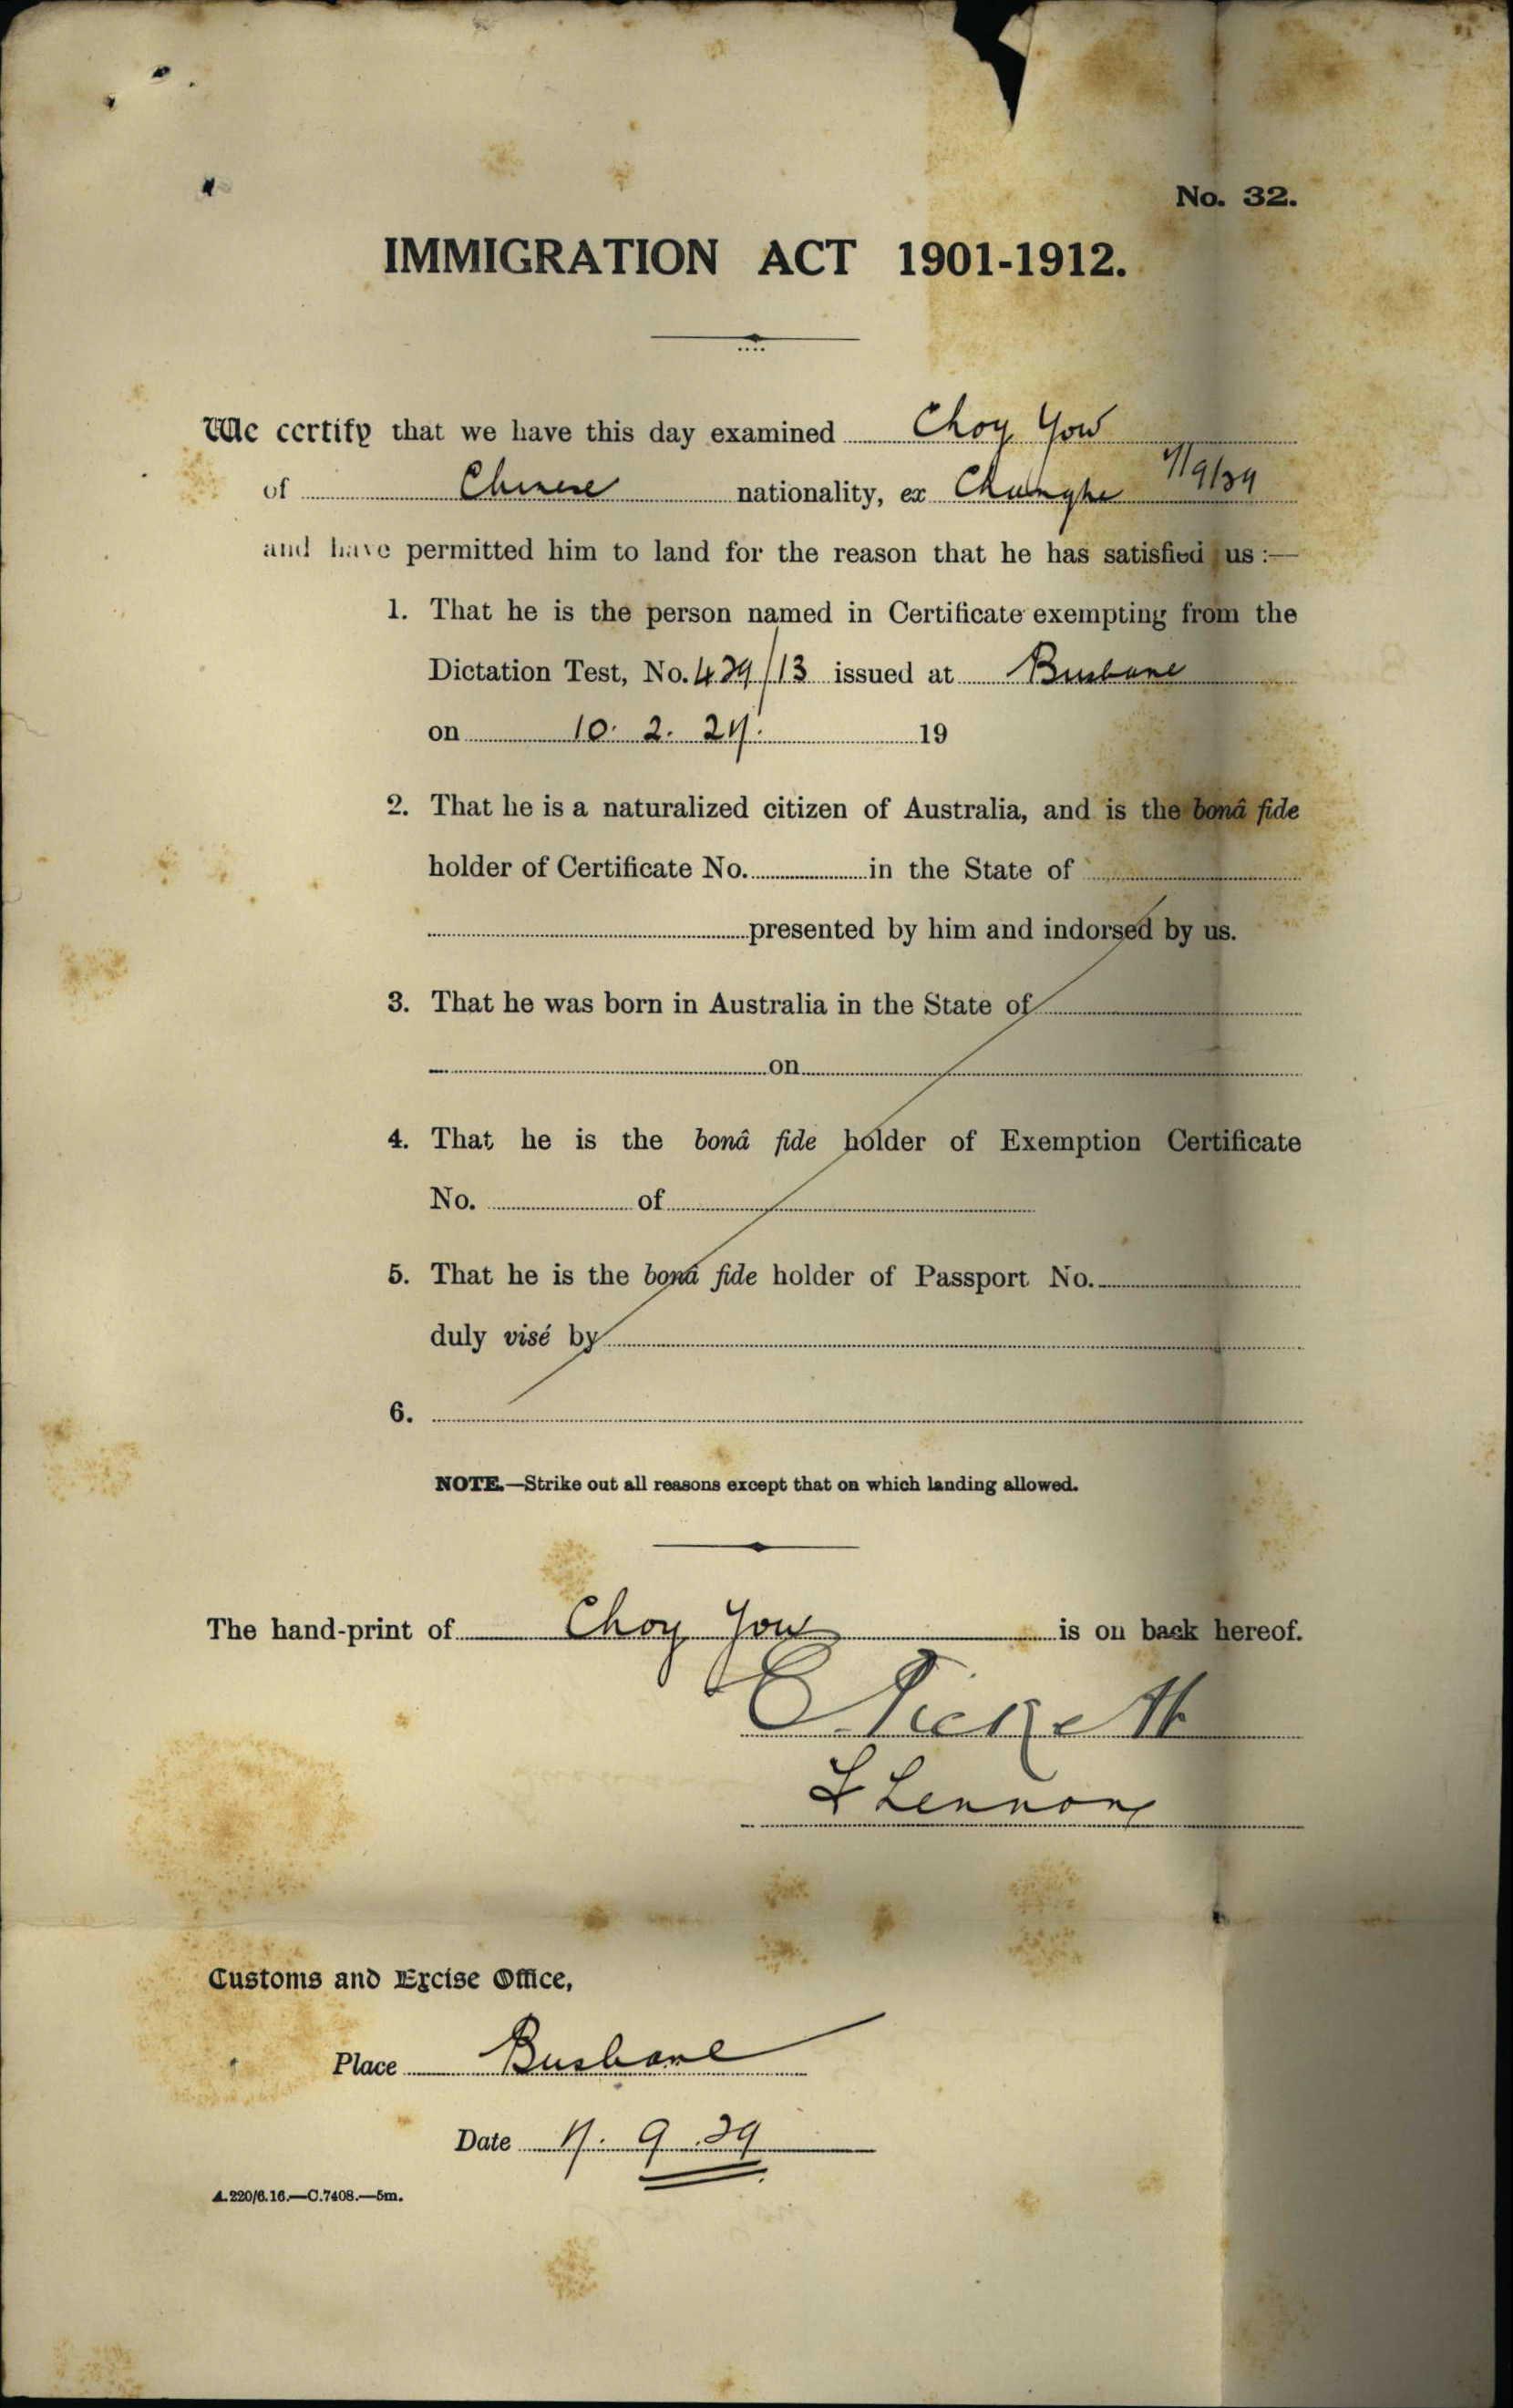 No. 32.
IMMIGRATION ACT 1901-1912.
We certify that we have this day examined Choy Yow
of Chinese nationality, ex Changhe
and have permitted him to land for the reason that he has satisfied us :—
1. That he is the person named in Certificate exempting from the
Dictation Test, No. 439/13 issued at Brisbane
on 10. 2. 24. 19
2. That he is a naturalized citizen of Australia, and is the bonâ fide
holder of Certificate No. in the State of
presented by him and indorsed by us.
3. That he was born in Australia in the State of
on
4. That he is the bonâ fide holder of Exemption Certificate
No. of
5. That he is the bonâ fide holder of Passport No.
duly visé by
6.
NOTE.—Strike out all reasons except that on which landing allowed.
The hand-print of Choy Yow is on back hereof.
Lennon
Customs and Excise Office,
Place Brisbane
Date
A.220/6.16.—C.7408.—5m.